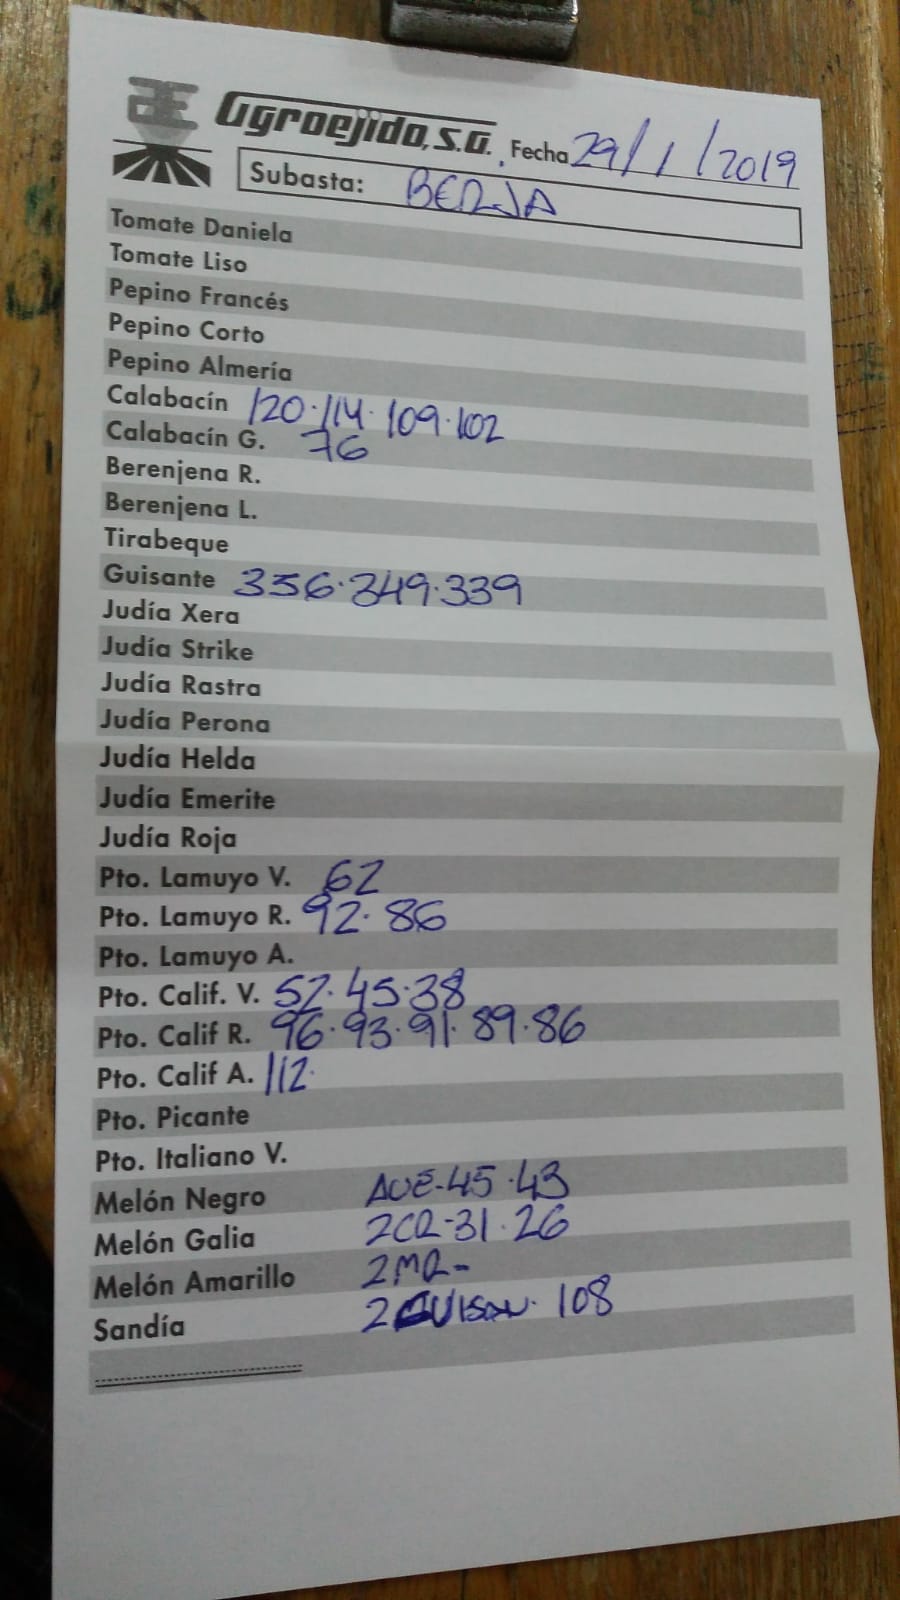 Agroejido, S.A. Fecha 29/1/2019
Subasta: BERJA
Tomate Daniela
Tomate Liso
Pepino Francés
Pepino Corto
Pepino Almería
Calabacín 120·114·109·102
Calabacín G. 76
Berenjena R.
Berenjena L.
Tirabeque
Guisante 356·349·339
Judía Xera
Judía Strike
Judía Rastra
Judía Perona
Judía Helda
Judía Emerite
Judía Roja
Pto. Lamuyo V. 62
Pto. Lamuyo R. 92·86
Pto. Lamuyo A.
Pto. Calif. V. 52·45·38
Pto. Calif R. 96·93·91·89·86
Pto. Calif A. 112·
Pto. Picante
Pto. Italiano V.
Melón Negro AVE-45·43
Melón Galia 2CR-31·26
Melón Amarillo 2MR-
Sandía 108